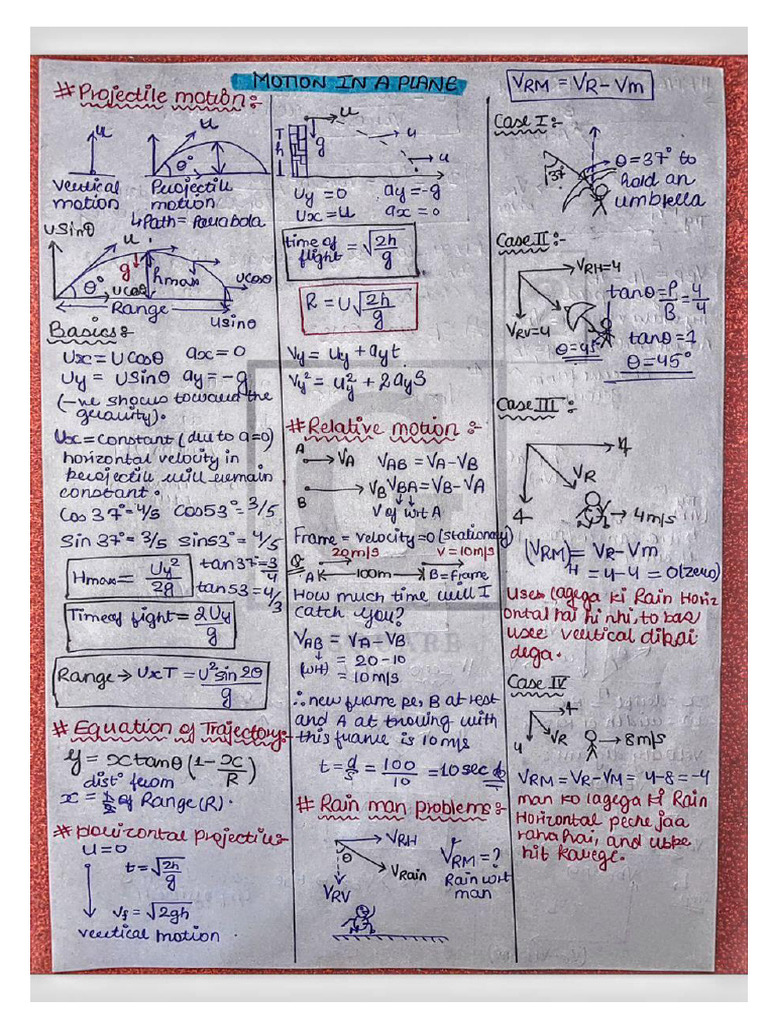 MOTION IN A PLANE
# Projectile motion:-
u
u
θ°
vertical motion
Projectile motion
↳Path = Parabola
usinθ
u
g
hmax
ucosθ
θ°
ucosθ
Range
usinθ
Basics:
Ux = U cosθ ax = 0
Uy = Usinθ ay = -g
(-ve shows toward the
gravity).
Ux = constant (due to a=0)
horizontal velocity in
projectile will remain
constant.
Cos 37° = 4/5 Cos53° = 3/5
Sin 37° = 3/5 Sin53° = 4/5
Hmax = Uy²/2g
tan37 = 3/4
tan53 = 4/3
Time of fight = 2Uy/g
Range → Ux T = U² sin 2θ/g
# Equation of Trajectory:-
y = x tanθ (1 - x/R)
distⁿ from
of Range (R).
# Horizontal projectile:-
U = 0
t = √2h/g
Vf = √2gh
vertical motion
u
g
u
u
h
Uy = 0 ay = -g
Ux = U ax = 0
time of flight = √2h/g
R = U√2h/g
Vy = Uy + ayt
Vy² = Uy² + 2ayS
# Relative motion:-
A
VA VAB = VA - VB
VB VBA = VB - VA
B
V of wrt A
Frame = velocity = 0 (stationary)
Q: 20m/s v = 10m/s
A 100m B = Frame
How much time will I
catch you?
VAB = VA - VB
(wrt) = 20 - 10
= 10 m/s
∴ new frame pe, B at rest
and A at moving with
this frame is 10 m/s
t = d/s = 100/10 = 10 sec
# Rain man problems:-
VRH
θ
VRain
VRV
VRM = ?
Rain wrt
man
VRM = VR - Vm
Case I:-
37
θ = 37° to
hold an
umbrella
Case II:-
VRH = 4
VRV = 4
θ = 45°
tanθ = P/B = 4/4
tanθ = 1
θ = 45°
Case III:-
4
VR
4
→ 4m/s
(VRM)H = VR - Vm
= 4 - 4 = 0 (zero)
Usee lagega ki Rain Horiz
ontal hai hi nhi, to bas
usee vertical dikhai
dega.
Case IV
4
4 VR
→ 8m/s
VRM = VR - VM = 4 - 8 = -4
man ko lagega ki Rain
Horizontal peche jaa
raha hai, and uske
hit karege.